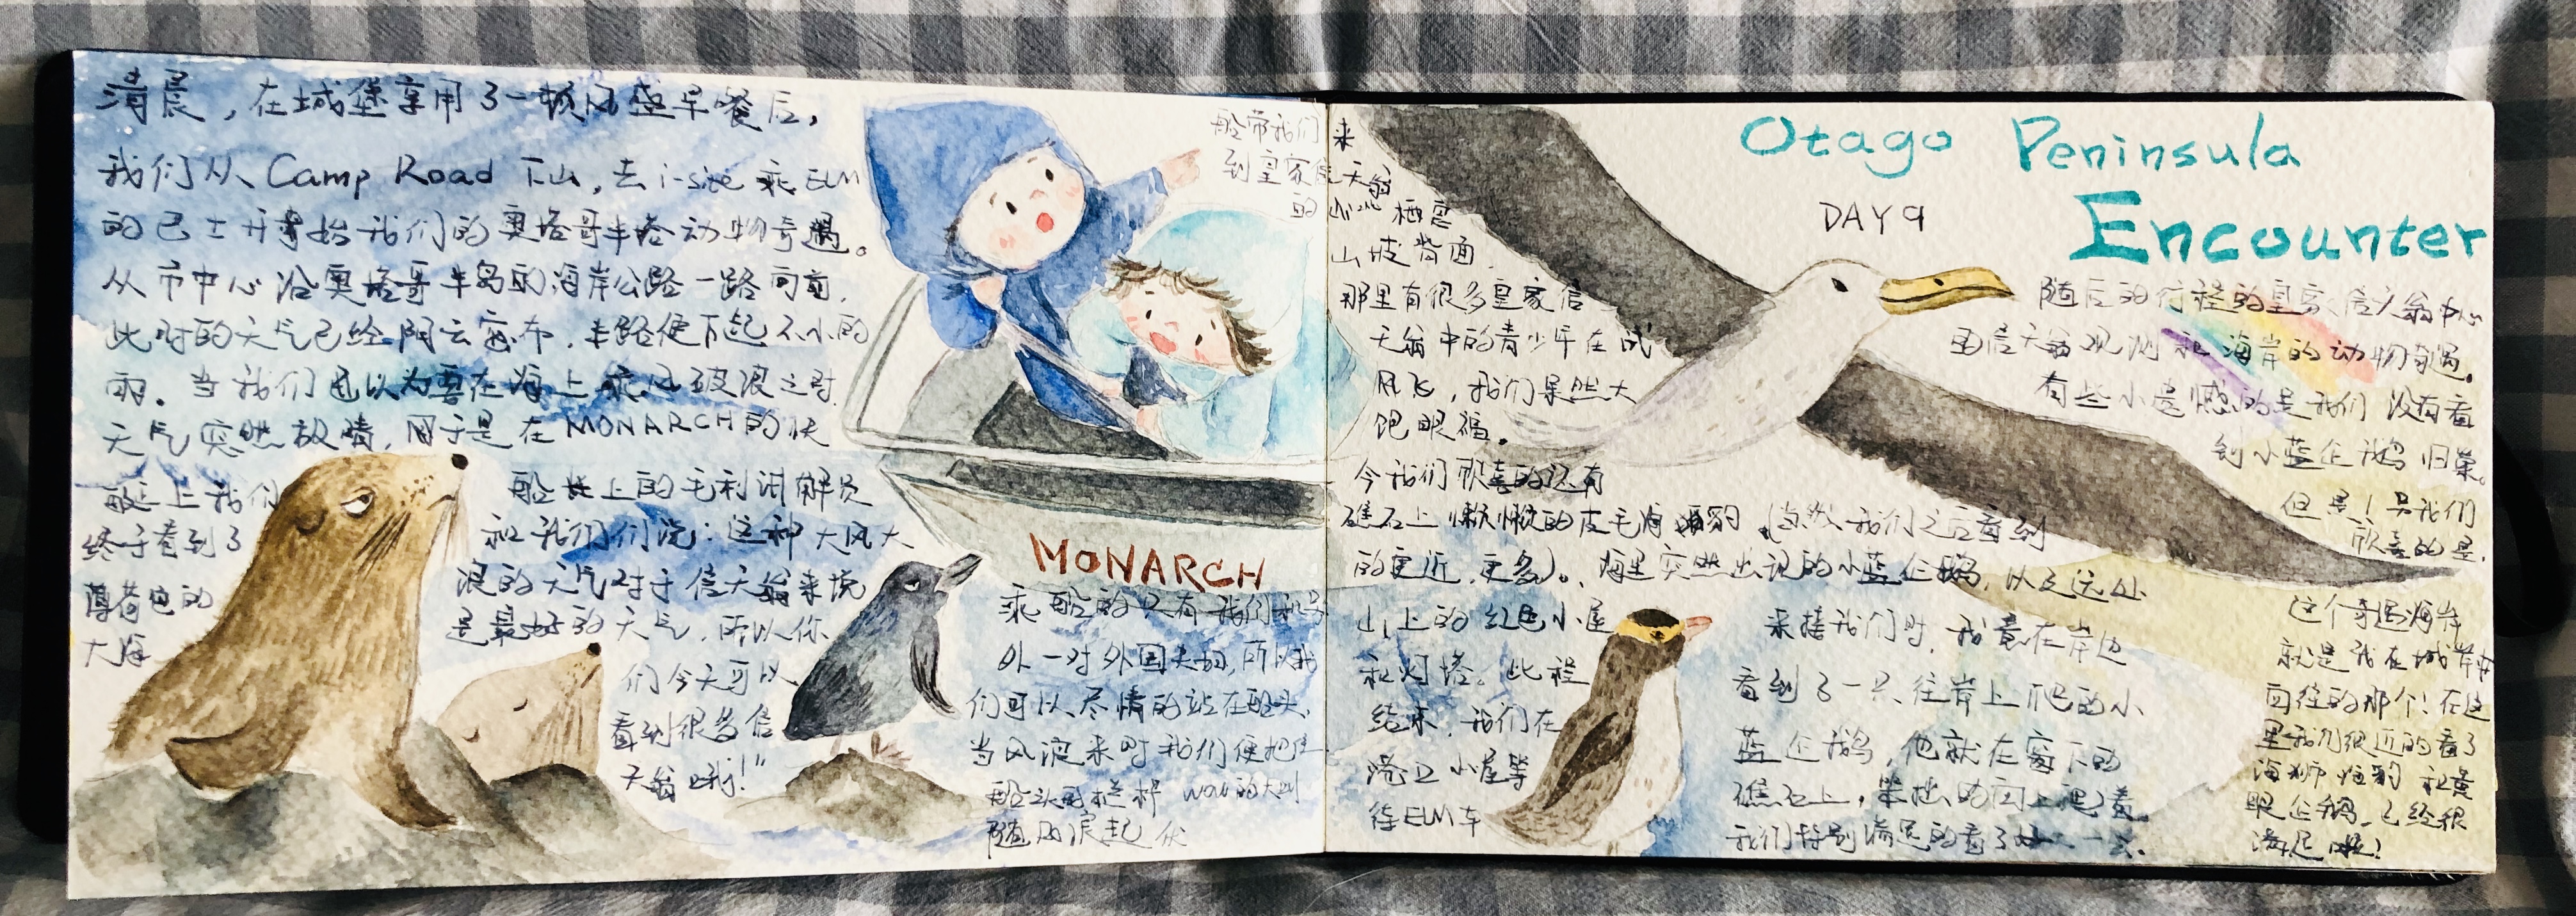 清晨,在城堡享用了一顿盛早餐后,
我们从 Camp Road 下山,去 i-site 乘 ELM
的巴士开始我们的奥塔哥半岛动物奇遇。
从市中心沿奥塔哥半岛的海岸公路一路向前,
此时的天气已经阴云密布,半路便下起不小的
雨。当我们还以为要在海上乘风破浪之时,
天气突然放晴,于是在MONARCH的快
艇上我们
终于看到了
薄荷色的
大海
船上的毛利讲解员
和我们们说:这种大风大
浪的天气对于信天翁来说
是最好的天气,所以你
们今天可以
看到很多信
天翁哦!"
MONARCH
乘船的只有我们和另
外一对外国夫妇,所以我
们可以尽情的站在船头,
当风浪来时我们便把住
船头的栏杆 wow的大叫
随的浪起伏
船带我们来
到皇家信天翁
的 栖息
山坡背面,
那里有很多皇家信
天翁中的青少年在试
风飞,我们果然大
饱眼福。
令我们欣喜的还有
礁石上懒懒的皮毛海豹(当然我们之后看到
的更近,更多)。海里突然出现的小蓝企鹅,以及远处
山上的红色小屋
和灯塔。此程
结束,我们在
港口小屋等
待ELM车
来接我们时,我竟在岸边
看到了一只往岸上爬的小
蓝企鹅,他就在窗下的
礁石上,笨拙的向上爬着。
我们特别满足的看了 一会.
Otago Peninsula
Encounter
DAY 9
随后的行程的皇家信天翁中心
的信天翁观测和海岸的动物奇遇。
有些小遗憾的是我们没有看
到小蓝企鹅归巢。
但是!另我们
欣喜的是,
这个奇遇海岸
就是我在城堡
向往的那个!在这
里我们很近的看了
海狮海豹和黄
眼企鹅,已经很
满足啦!